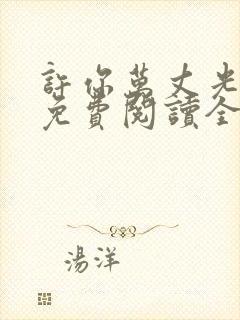 許你萬丈光
免費閱讀全
湯洋